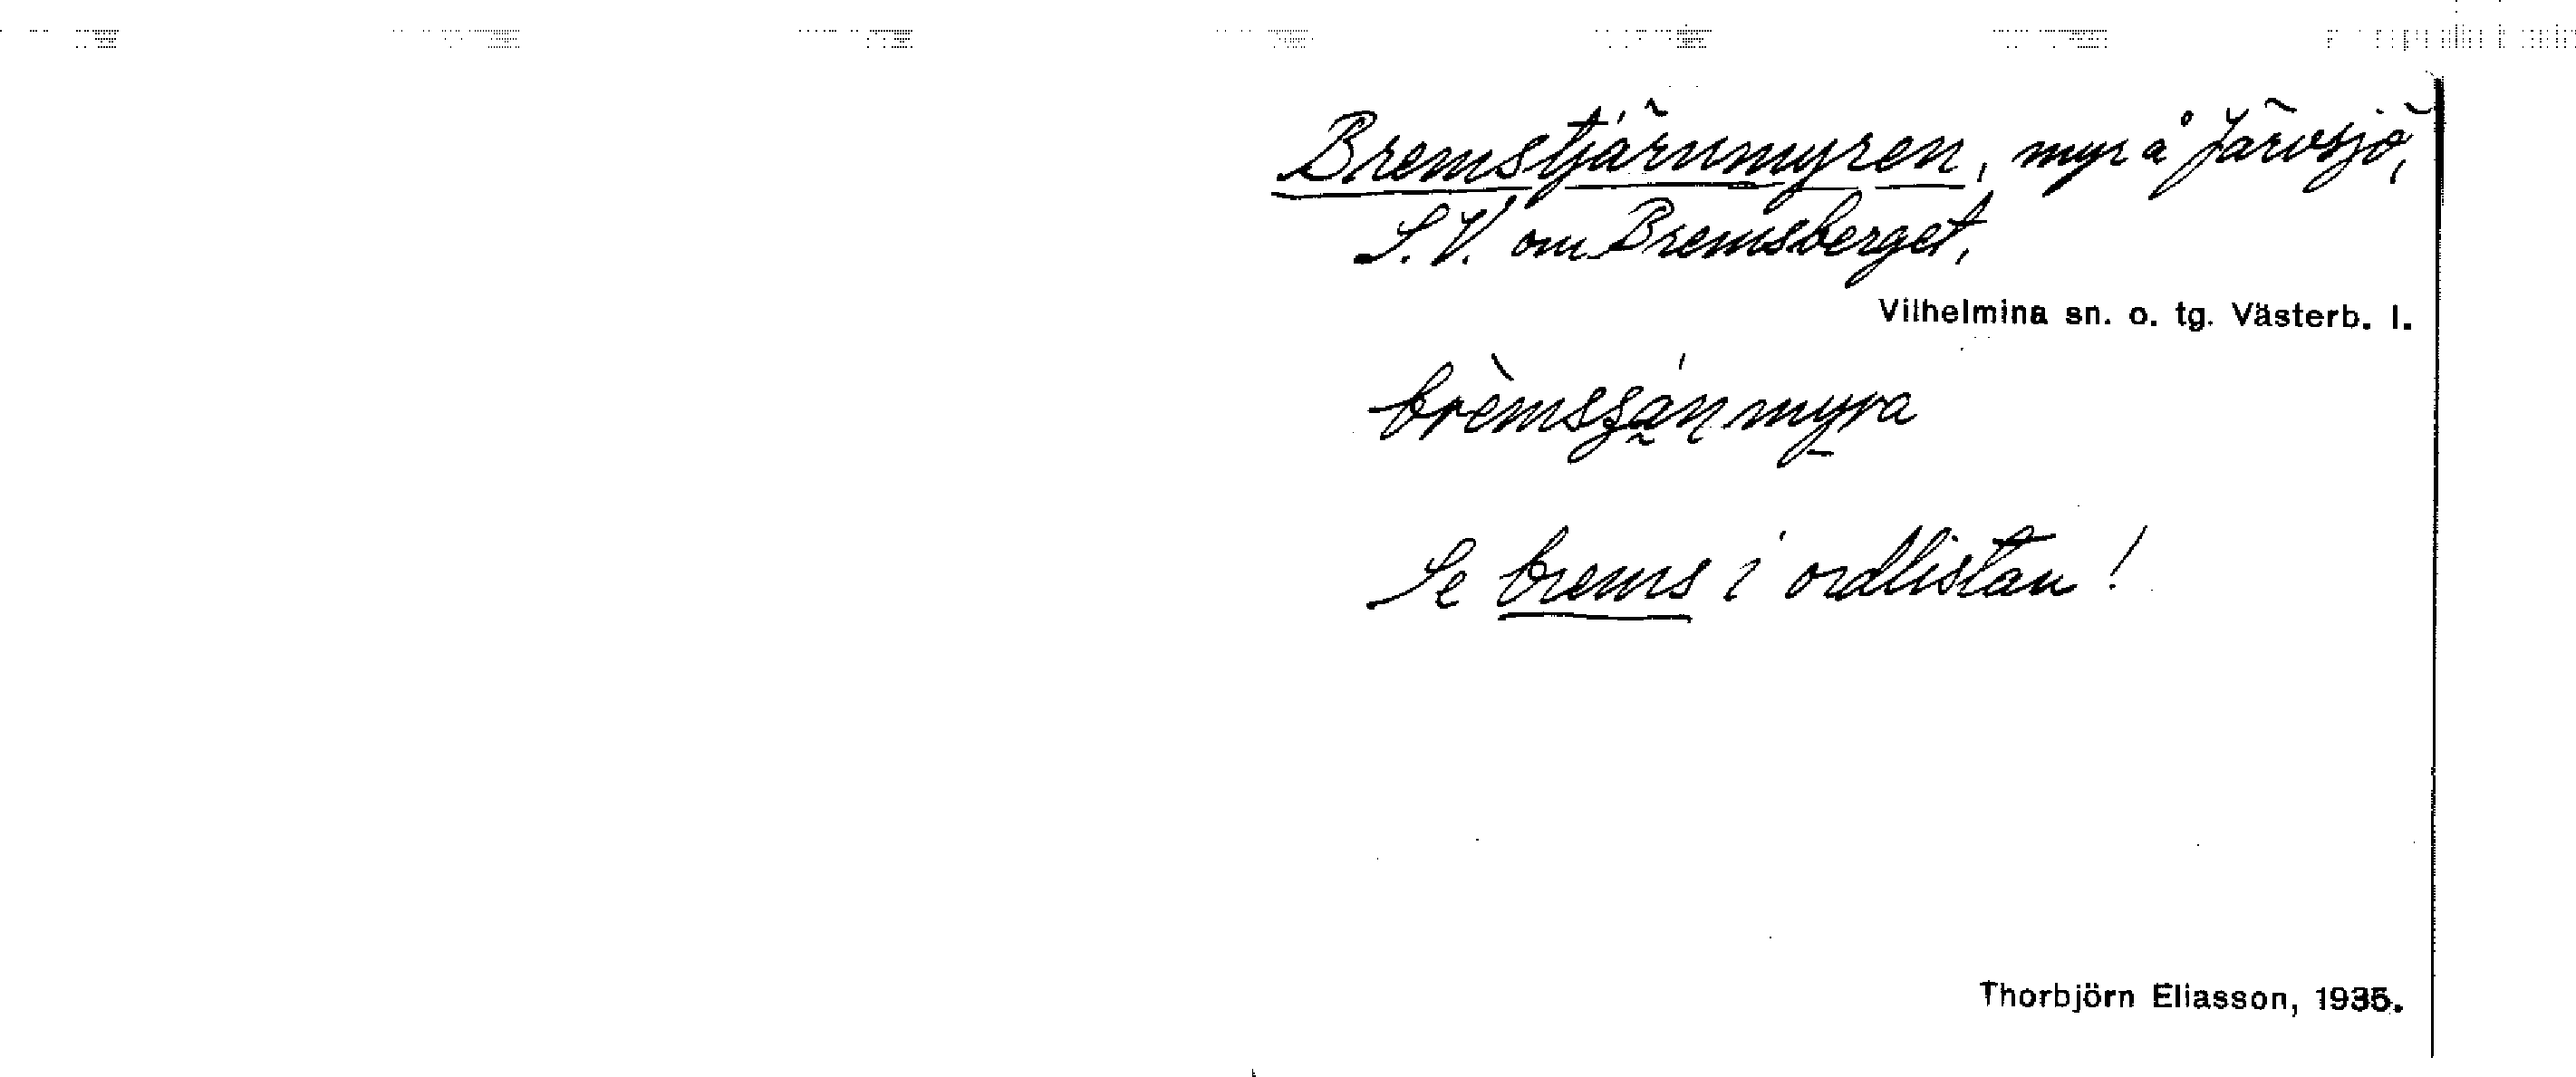 Bremstjärnmyren, myr å Järvsjö,
S.V. om Bremsberget,
Vilhelmina sn. o. tg. Västerb. l.
Se brems i ordlistan!
Thorbjörn Eliasson, 1935.